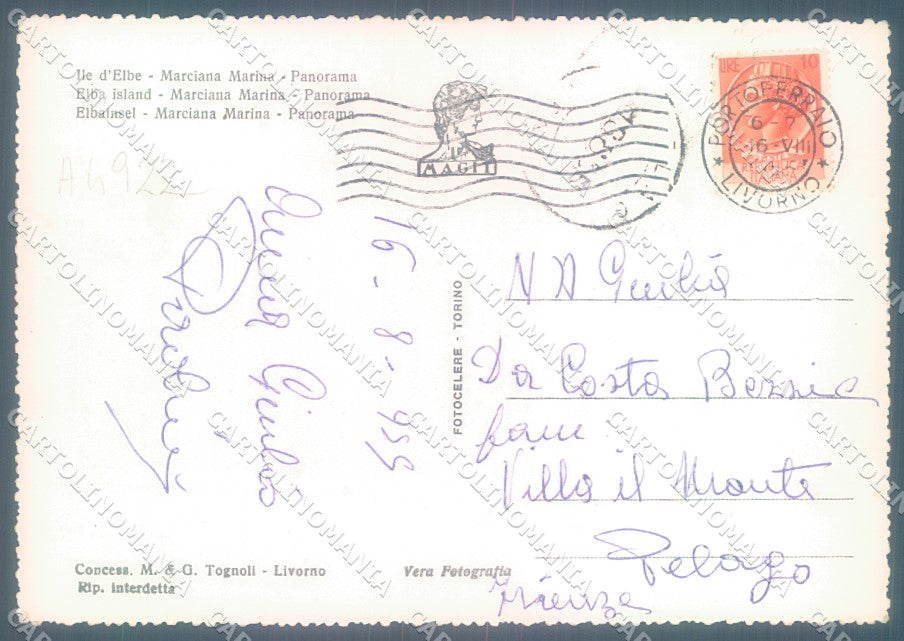 Ile d'Elbe - Marciana Marina - Panorama
Elba island - Marciana Marina - Panorama
Elbainsel - Marciana Marina - Panorama
A4922
MAGIL
LIRE 10
PORTOFERRAIO
6-7
16-VIII
LIVORNO
ITALIANA
16-8-959
FOTOCELERE - TORINO
N D Giulia
Da Costa
fam
Villa il Monte
Pelago
Firenze
Concess. M. & G. Tognoli - Livorno
Rip. interdetta
Vera Fotografia
CARTOLINOMANIA